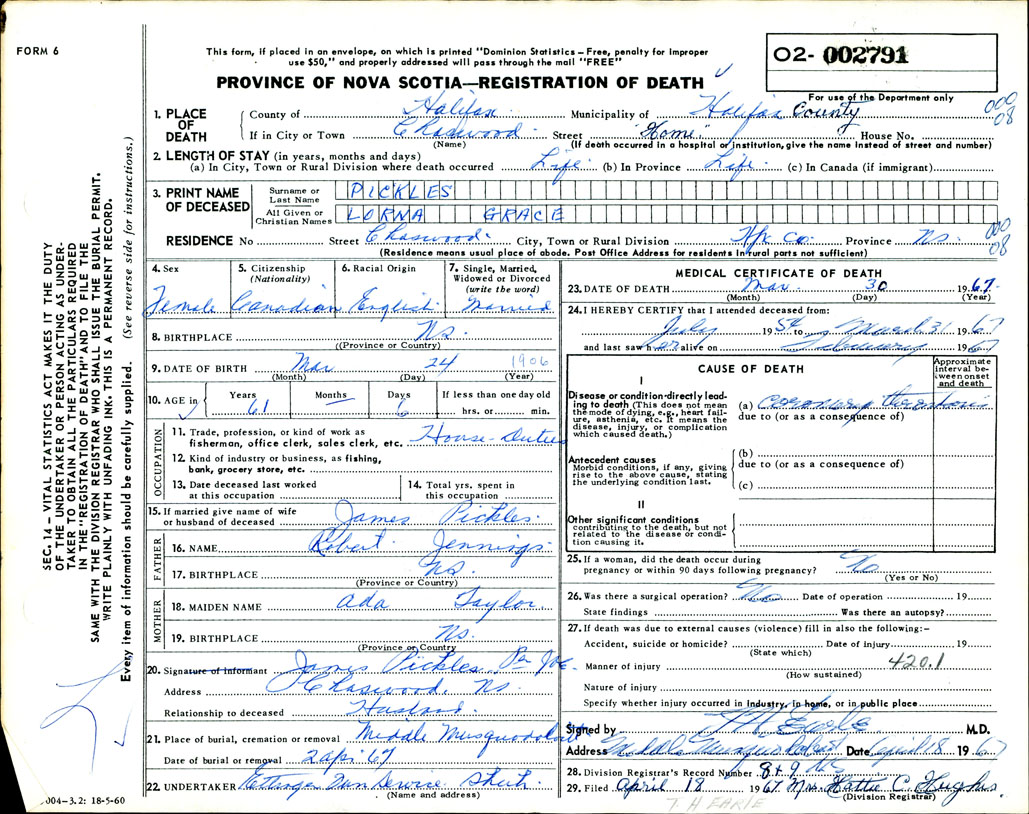 FORM 6
This form, if placed in an envelope, on which is printed "Dominion Statistics – Free, penalty for improper
use $50," and properly addressed will pass through the mail "FREE"
O2- 002791
PROVINCE OF NOVA SCOTIA—REGISTRATION OF DEATH
For use of the Department only
1. PLACE OF DEATH
County of Halifax Municipality of Halifax County 000 08
If in City or Town Chaswood Street "Home" House No.
(Name) (If death occurred in a hospital or institution, give the name instead of street and number)
2. LENGTH OF STAY (in years, months and days)
(a) In City, Town or Rural Division where death occurred Life (b) In Province Life (c) In Canada (if immigrant)
3. PRINT NAME OF DECEASED
Surname or Last Name PICKLES
All Given or Christian Names LORNA GRACE
RESIDENCE No Street Chaswood City, Town or Rural Division Hfx Co. Province NS. 000 08
(Residence means usual place of abode. Post Office Address for residents in rural parts not sufficient)
4. Sex 5. Citizenship (Nationality) 6. Racial Origin 7. Single, Married, Widowed or Divorced (write the word)
Female Canadian English Married
8. BIRTHPLACE NS.
(Province or Country)
9. DATE OF BIRTH Mar 24 1906
(Month) (Day) (Year)
10. AGE in Years Months Days If less than one day old
61 6 hrs. or min.
OCCUPATION
11. Trade, profession, or kind of work as
fisherman, office clerk, sales clerk, etc. House-Duties
12. Kind of industry or business, as fishing,
bank, grocery store, etc.
13. Date deceased last worked
at this occupation
14. Total yrs. spent in
this occupation
15. If married give name of wife
or husband of deceased James Pickles
FATHER
16. NAME Robert Jennings
17. BIRTHPLACE NS.
(Province or Country)
MOTHER
18. MAIDEN NAME Ada Taylor
19. BIRTHPLACE NS.
(Province or Country)
20. Signature of informant James Pickles Per
Address Chaswood, NS
Relationship to deceased Husband
21. Place of burial, cremation or removal Middle Musquodoboit
Date of burial or removal 2 Apr 67
22. UNDERTAKER Ettinger
(Name and address)
004–3.2: 18-5-60
MEDICAL CERTIFICATE OF DEATH
23. DATE OF DEATH Mar 30 1967.
(Month) (Day) (Year)
24. I HEREBY CERTIFY that I attended deceased from:
July 1954 to March 31 1967
and last saw her alive on February 1967
CAUSE OF DEATH
Approximate interval between onset and death
I
Disease or condition directly leading to death (This does not mean the mode of dying, e.g., heart failure, asthenia, etc. It means the disease, injury, or complication which caused death.)
(a) coronary thrombosis
due to (or as a consequence of)
Antecedent causes
Morbid conditions, if any, giving rise to the above cause, stating the underlying condition last.
(b)
due to (or as a consequence of)
(c)
II
Other significant conditions
contributing to the death, but not related to the disease or condition causing it.
25. If a woman, did the death occur during
pregnancy or within 90 days following pregnancy? No
(Yes or No)
26. Was there a surgical operation? No Date of operation 19
State findings Was there an autopsy?
27. If death was due to external causes (violence) fill in also the following:–
Accident, suicide or homicide? Date of injury 19
(State which)
Manner of injury 420.1
(How sustained)
Nature of injury
Specify whether injury occurred in industry, in home, or in public place
Signed by T H Earle M.D.
Address Middle Musquodoboit Date April 18 1967
28. Division Registrar's Record Number 849
29. Filed April 18 1967 Mrs. Hattie C. Hughes
(Division Registrar)
T. H EARLE
SEC. 14 – VITAL STATISTICS ACT MAKES IT THE DUTY
OF THE UNDERTAKER OR PERSON ACTING AS UNDER-
TAKER TO OBTAIN ALL THE PARTICULARS REQUIRED
IN THE "REGISTRATION OF DEATH" AND TO FILE THE
SAME WITH THE DIVISION REGISTRAR WHO SHALL ISSUE THE BURIAL PERMIT.
WRITE PLAINLY WITH UNFADING INK. THIS IS A PERMANENT RECORD.
Every item of information should be carefully supplied. (See reverse side for instructions.)